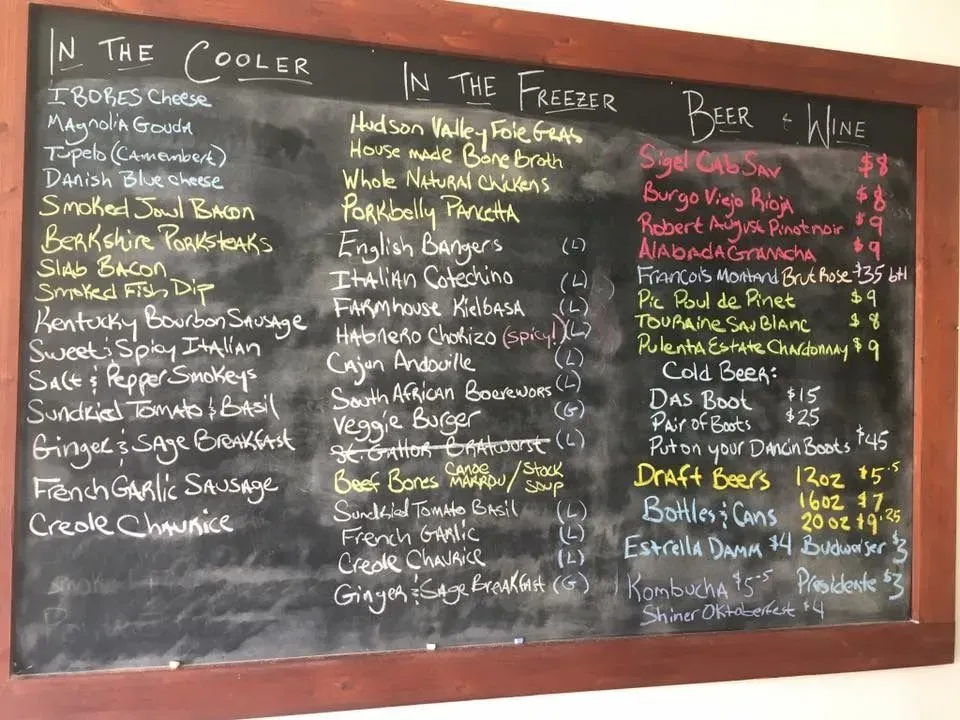 IN THE COOLER
I BORES Cheese
MAgnoliA GoudA
Tupelo (CAmembert)
DANish Blue cheese
Smoked Jowl BAcon
BERKshire PorkSteaks
SlAb BAcon
Smoked Fish Dip
Kentucky Bourbon SAusage
Sweet & Spicy ItAliAn
SAlt & Pepper Smokeys
SunDRied TomAto & BAsil
GingeR & SAge BREAKfAst
FRench GARlic SAusage
CReole ChAuRice
IN THE FREEZER
Hudson VAlley Foie GRAS
House made Bone BRoth
Whole NAtural Chickens
PoRkbelly PAncettA
English BAngers (L)
ItAliAn Cotechino (L)
FARmhouse KielbAsA (L)
HAbNero ChoRizo (spicy!) (L)
CAjun Andouille (L)
South AfRicAn BoeRewoRs (L)
Veggie BuRgeR (G)
St. GAllon BRAtwuRst (L)
Beef Bones CANOE MARROW / STOCK SOUP
SunDRied TomAto BAsil (L)
FRench GARlic (L)
CReole ChAuRice (L)
GingeR & SAge BReAkfAst (G)
BEER & WINE
Sigel CAb SAv $8
BuRgo Viejo RiojA $8
RobeRt August Pinot noir $9
AlAbAdA GRAnAchA $9
FRAncois MontAnd BRut Rose $35 btl
Pic Poul de Pinet $9
TouRAine SAu BlAnc $8
PulentA EstAte ChARdonnAy $9
Cold BeeR:
DAs Boot $15
PAiR of Boots $25
Put on youR DAncin Boots $45
DRAft BeeRs 12oz $5.5
16oz $7
Bottles & CAns 20oz $9.25
EstRellA DAmm $4 BudweiseR $3
KombuchA $5.5 PResidente $3
ShineR OktobeRfest $4